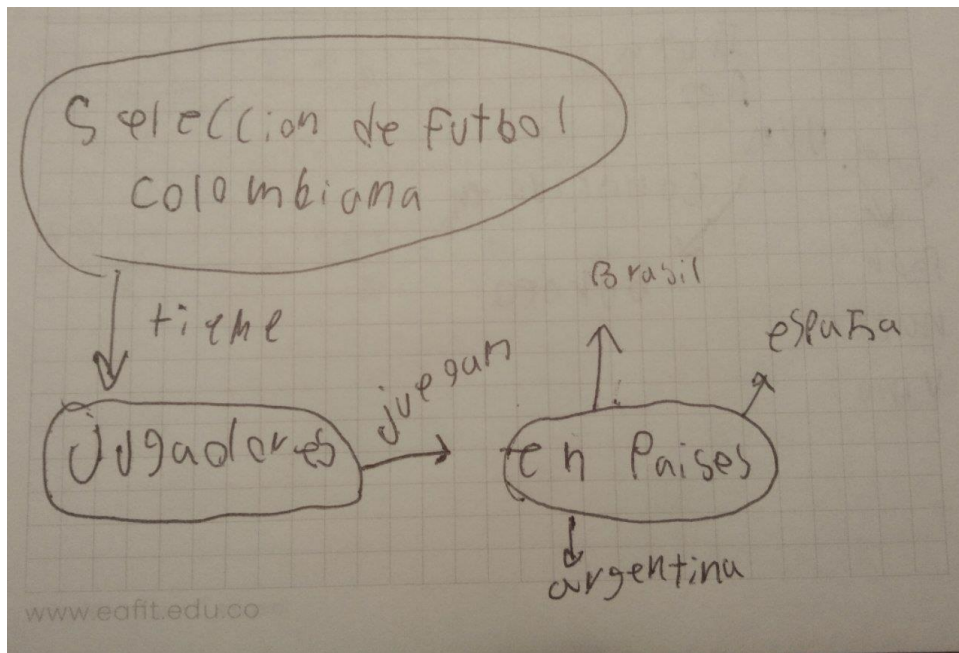 Seleccion de futbol
colombiana
tiene
jugadores
juegan
en Paises
Brasil
españa
argentina
www.eafit.edu.co